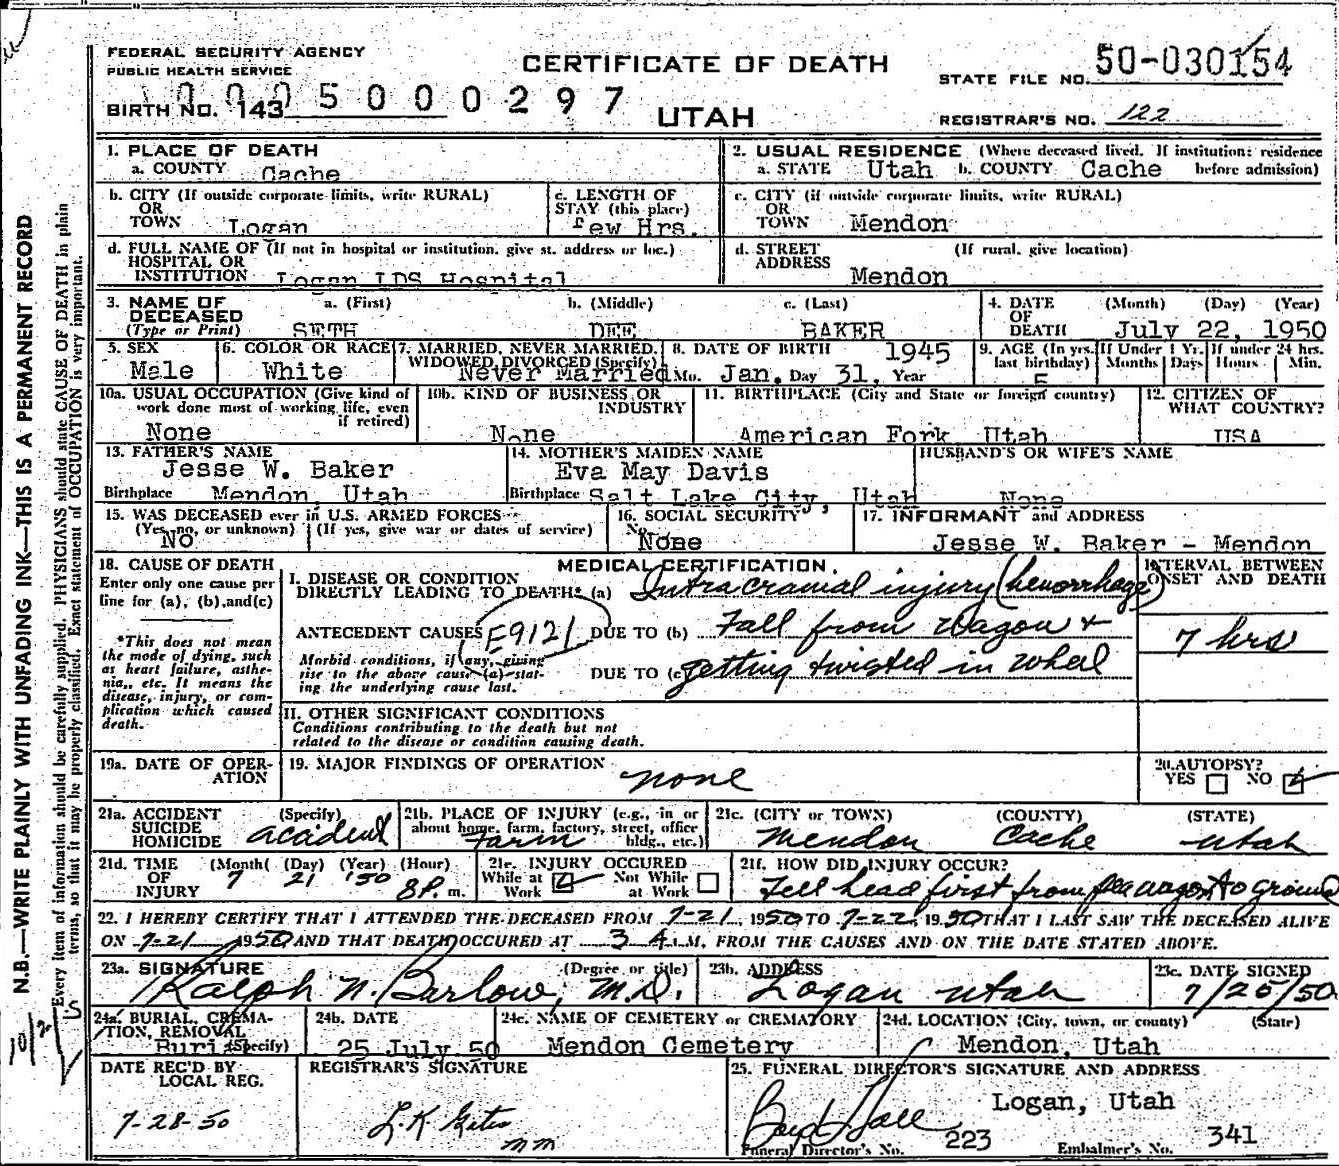 FEDERAL SECURITY AGENCY
PUBLIC HEALTH SERVICE
CERTIFICATE OF DEATH
UTAH
STATE FILE NO. 50-030154
BIRTH NO. 143 0005000297
REGISTRAR'S NO. 122
N.B.—WRITE PLAINLY WITH UNFADING INK—THIS IS A PERMANENT RECORD
Every item of information should be carefully supplied. PHYSICIANS should state CAUSE OF DEATH in plain
terms, so that it may be properly classified. Exact statement of OCCUPATION is very important.
1. PLACE OF DEATH
a. COUNTY Cache
2. USUAL RESIDENCE (Where deceased lived. If institution: residence
a. STATE Utah b. COUNTY Cache before admission)
b. CITY (If outside corporate limits, write RURAL)
OR
TOWN Logan
c. LENGTH OF
STAY (this place)
few Hrs.
c. CITY (if outside corporate limits, write RURAL)
OR
TOWN Mendon
d. FULL NAME OF (If not in hospital or institution, give st. address or loc.)
HOSPITAL OR
INSTITUTION Logan LDS Hospital
d. STREET (If rural, give location)
ADDRESS
Mendon
3. NAME OF
DECEASED
(Type or Print)
a. (First) b. (Middle) c. (Last)
SETH DEE BAKER
4. DATE (Month) (Day) (Year)
OF
DEATH July 22, 1950
5. SEX
Male
6. COLOR OR RACE
White
7. MARRIED, NEVER MARRIED,
WIDOWED, DIVORCED (Specify)
Never Married
8. DATE OF BIRTH 1945
Mo. Jan. Day 31, Year
9. AGE (In yrs. last birthday)
5
If Under 1 Yr.
Months Days
If under 24 hrs.
Hours Min.
10a. USUAL OCCUPATION (Give kind of
work done most of working life, even
if retired)
None
10b. KIND OF BUSINESS OR
INDUSTRY
None
11. BIRTHPLACE (City and State or foreign country)
American Fork, Utah
12. CITIZEN OF
WHAT COUNTRY?
USA
13. FATHER'S NAME
Jesse W. Baker
Birthplace Mendon, Utah
14. MOTHER'S MAIDEN NAME
Eva May Davis
Birthplace Salt Lake City, Utah
HUSBAND'S OR WIFE'S NAME
None
15. WAS DECEASED ever in U.S. ARMED FORCES
(Yes, no, or unknown) (If yes, give war or dates of service)
No
16. SOCIAL SECURITY
No.
None
17. INFORMANT and ADDRESS
Jesse W. Baker - Mendon
18. CAUSE OF DEATH
Enter only one cause per
line for (a), (b), and (c)
*This does not mean
the mode of dying, such
as heart failure, asthe-
nia, etc. It means the
disease, injury, or com-
plication which caused
death.
MEDICAL CERTIFICATION
INTERVAL BETWEEN
ONSET AND DEATH
I. DISEASE OR CONDITION
DIRECTLY LEADING TO DEATH* (a) Intracranial injury (hemorrhage)
ANTECEDENT CAUSES E9121 DUE TO (b) Fall from wagon +
7 hrs
Morbid conditions, if any, giving
rise to the above cause (a) stat-
ing the underlying cause last.
DUE TO (c) getting twisted in wheel
II. OTHER SIGNIFICANT CONDITIONS
Conditions contributing to the death but not
related to the disease or condition causing death.
19a. DATE OF OPER-
ATION
19. MAJOR FINDINGS OF OPERATION
none
20. AUTOPSY?
YES NO
21a. ACCIDENT (Specify)
SUICIDE
HOMICIDE accident
21b. PLACE OF INJURY (e.g., in or
about home, farm, factory, street, office
bldg., etc.)
Farm
21c. (CITY or TOWN) (COUNTY) (STATE)
Mendon Cache Utah
21d. TIME (Month) (Day) (Year) (Hour)
OF
INJURY 7 21 '50 8 P. m.
21e. INJURY OCCURED
While at Work Not While at Work
21f. HOW DID INJURY OCCUR?
Fell head first from pea wagon to ground
22. I HEREBY CERTIFY THAT I ATTENDED THE DECEASED FROM 7-21, 1950 TO 7-22, 1950 THAT I LAST SAW THE DECEASED ALIVE
ON 7-21 1950 AND THAT DEATH OCCURED AT 3 A. M. FROM THE CAUSES AND ON THE DATE STATED ABOVE.
23a. SIGNATURE (Degree or title)
Ralph N. Barlow, M.D.
23b. ADDRESS
Logan Utah
23c. DATE SIGNED
7/25/50
24a. BURIAL, CREMA-
TION, REMOVAL
(Specify)
Burial
24b. DATE
25 July 50
24c. NAME OF CEMETERY or CREMATORY
Mendon Cemetery
24d. LOCATION (City, town, or county) (State)
Mendon, Utah
DATE REC'D BY
LOCAL REG.
7-28-50
REGISTRAR'S SIGNATURE
mm
25. FUNERAL DIRECTOR'S SIGNATURE AND ADDRESS
Logan, Utah
Boyd Hall
Funeral Director's No. 223 Embalmer's No. 341